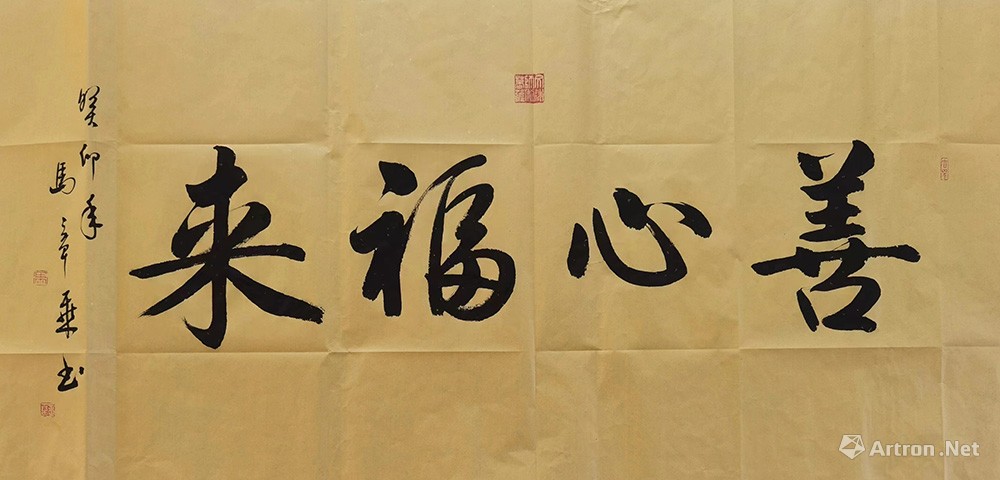 善心福来
癸卯年
馬章乘书
Artron.Net